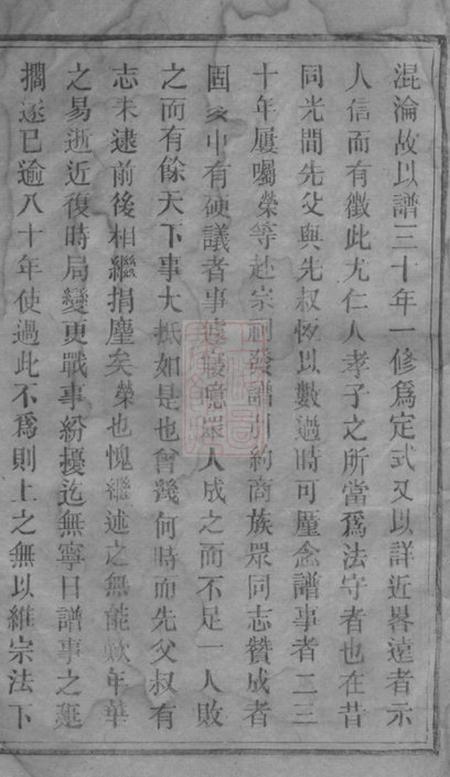 混淪故以譜三十年一修爲定式又以詳近畧遠者示
人信而有徵此尤仁人孝子之所當爲法守者也在昔
同光間先父與先叔恆以數過時可廑念譜事者二三
十年屢囑榮等赴宗祠發譜引約商族眾同志贊成者
固多中有硬議者事遂寢噫眾人成之而不足一人敗
之而有餘天下事大抵如是也曾幾何時而先父叔有
志未逮前後相繼捐塵矣榮也愧繼述之無能歎年華
之易逝近復時局變更戰事紛擾迄無寧日譜事之延
擱遂已逾八十年使過此不爲則上之無以維宗法下